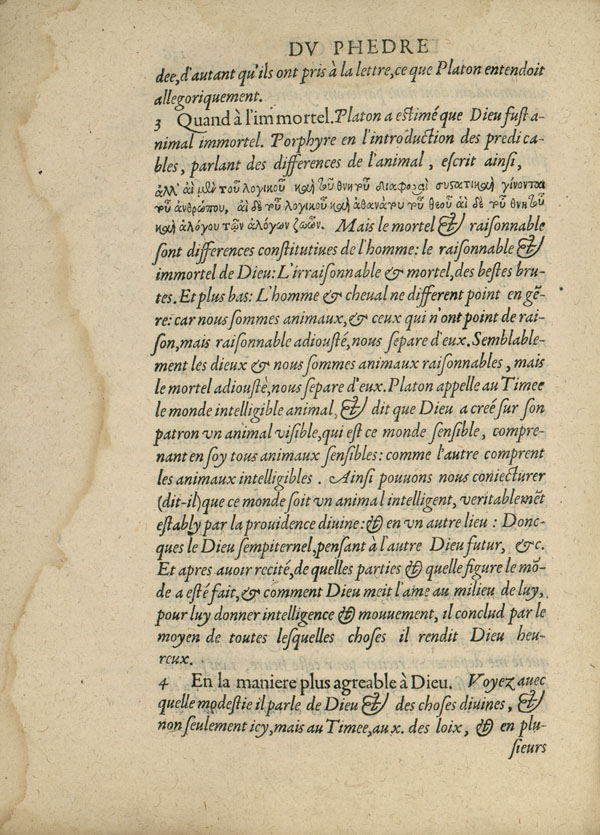 DV PHEDRE
dee, d'autant qu'ils ont pris à la lettre, ce que Platon entendoit
allegoriquement.
3 Quand à l'immortel. Platon a estimé que Dieu fust a-
nimal immortel. Porphyre en l'introduction des predica-
bles, parlant des differences de l'animal, escrit ainsi,
ἀλλ' αἱ μὲν τοῦ λογικοῦ καὶ τοῦ θνητοῦ διαφοραὶ συστατικαὶ γίνονται
τοῦ ἀνθρώπου, αἱ δὲ τοῦ λογικοῦ καὶ ἀθανάτου τοῦ θεοῦ αἱ δὲ τοῦ θνητοῦ
καὶ ἀλόγου τῶν ἀλόγων ζώων. Mais le mortel & raisonnable
sont differences constitutiues de l'homme: le raisonnable &
immortel de Dieu: L'irraisonnable & mortel, des bestes bru-
tes. Et plus bas: L'homme & cheual ne different point en gē-
re: car nous sommes animaux, & ceux qui n'ont point de rai-
son, mais raisonnable adiousté, nous separe d'eux. Semblable-
ment les dieux & nous sommes animaux raisonnables, mais
le mortel adiousté, nous separe d'eux. Platon appelle au Timee
le monde intelligible animal, & dit que Dieu a creé sur son
patron vn animal visible, qui est ce monde sensible, compre-
nant en soy tous animaux sensibles: comme l'autre comprent
les animaux intelligibles. Ainsi pouuons nous coniecturer
(dit-il) que ce monde soit vn animal intelligent, veritablemēt
estably par la prouidence diuine: & en vn autre lieu: Donc-
ques le Dieu sempiternel, pensant à l'autre Dieu futur, &c.
Et apres auoir recité, de quelles parties & quelle figure le mō-
de a esté fait, & comment Dieu meit l'ame au milieu de luy,
pour luy donner intelligence & mouuement, il conclud par le
moyen de toutes lesquelles choses il rendit Dieu heu-
reux.
4 En la maniere plus agreable à Dieu. Voyez auec
quelle modestie il parle de Dieu & des choses diuines, &
non seulement icy, mais au Timee, au x. des loix, & en plu-
sieurs